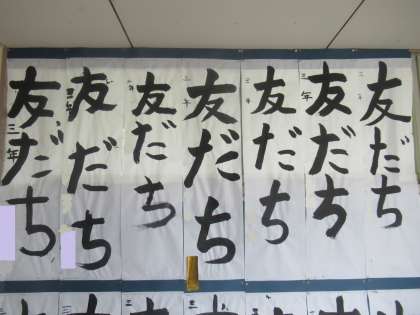 友だち
三年
友だち
三年
友だち
三年
友だち
三年
友だち
三年
友だち
三年
友だち
三年